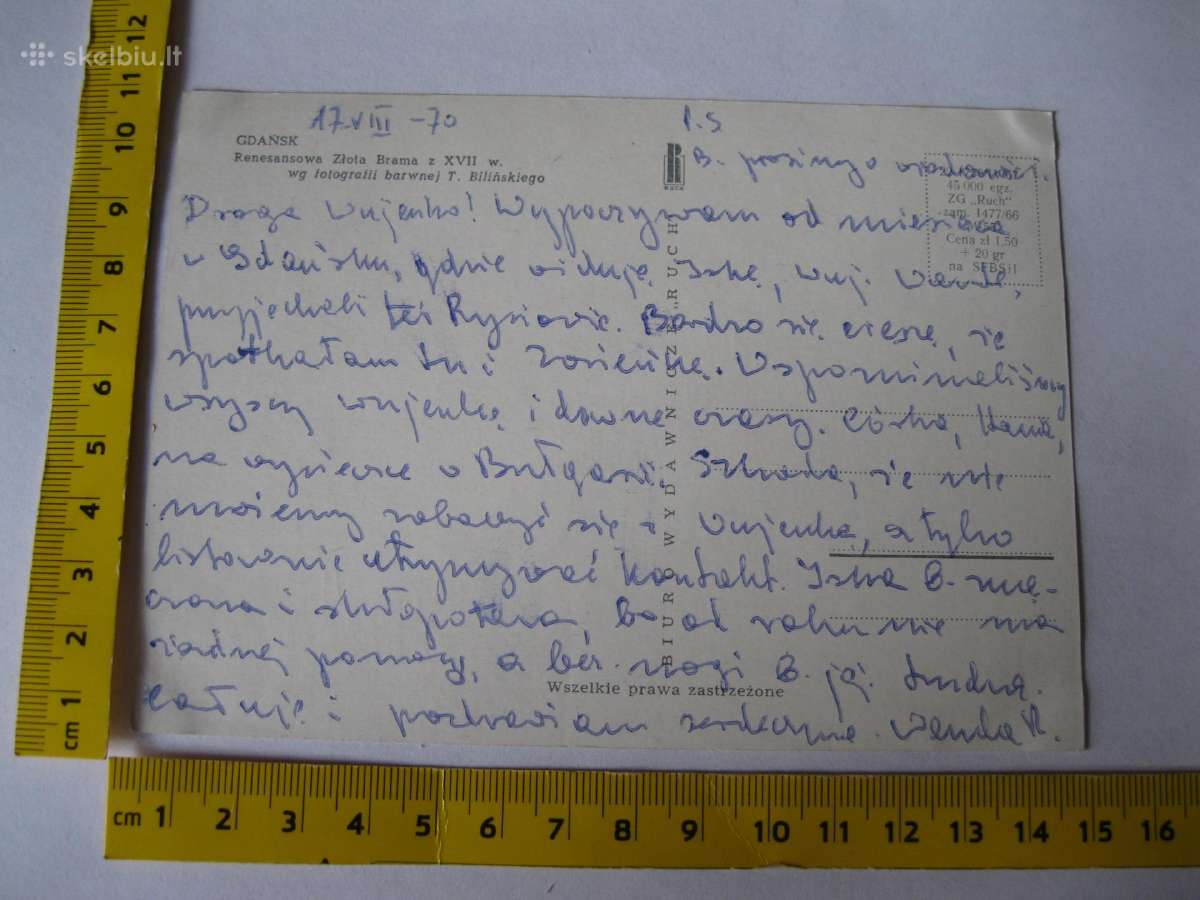 skelbiu.lt
17 VIII -70
P.S
B. proszę o wiadomość.
GDAŃSK
Renesansowa Złota Brama z XVII w.
wg fotografii barwnej T. Bilińskiego
RUCH
45 000 egz.
ZG „Ruch"
zam. 1477/66
Cena zł 1,50
+ 20 gr
na SFBSiI
Droga Wujenko! Wypoczywam od miesiąca
w Gdańsku, gdzie widuję Iskę, wuj.
przyjechali też Rysiowie. Bardzo się cieszę, że
spotkałam tu i Zosieńkę. Wspominaliśmy
wszyscy wujenkę i dawne czasy. Córka, Hania,
na wycieczce w Bułgarii. Szkoda, że nie
możemy zobaczyć się z Wujenką, a tylko
listownie utrzymywać kontakt. Iska B. zmę-
czona i skłopotana, bo od roku nie ma
żadnej pomocy, a bez nogi B. jej trudno.
Całuję i pozdrawiam serdecznie Wanda R.
BIURO WYDAWNICZE „RUCH"
Wszelkie prawa zastrzeżone
cm 1 2 3 4 5 6 7 8 9 10 11 12
cm 1 2 3 4 5 6 7 8 9 10 11 12 13 14 15 16